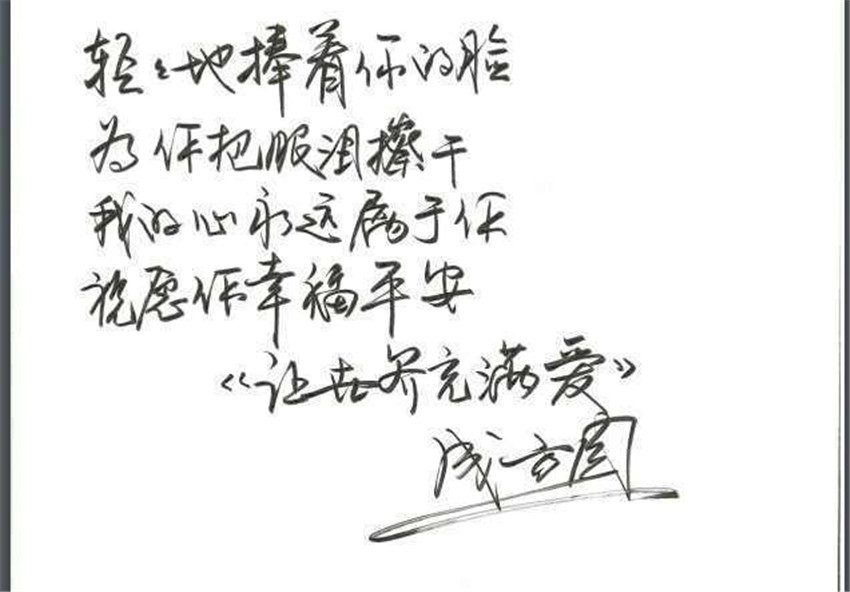 轻々地捧着你的脸
为你把眼泪擦干
我的心永远属于你
祝愿你幸福平安
《让世界充满爱》
成方圆